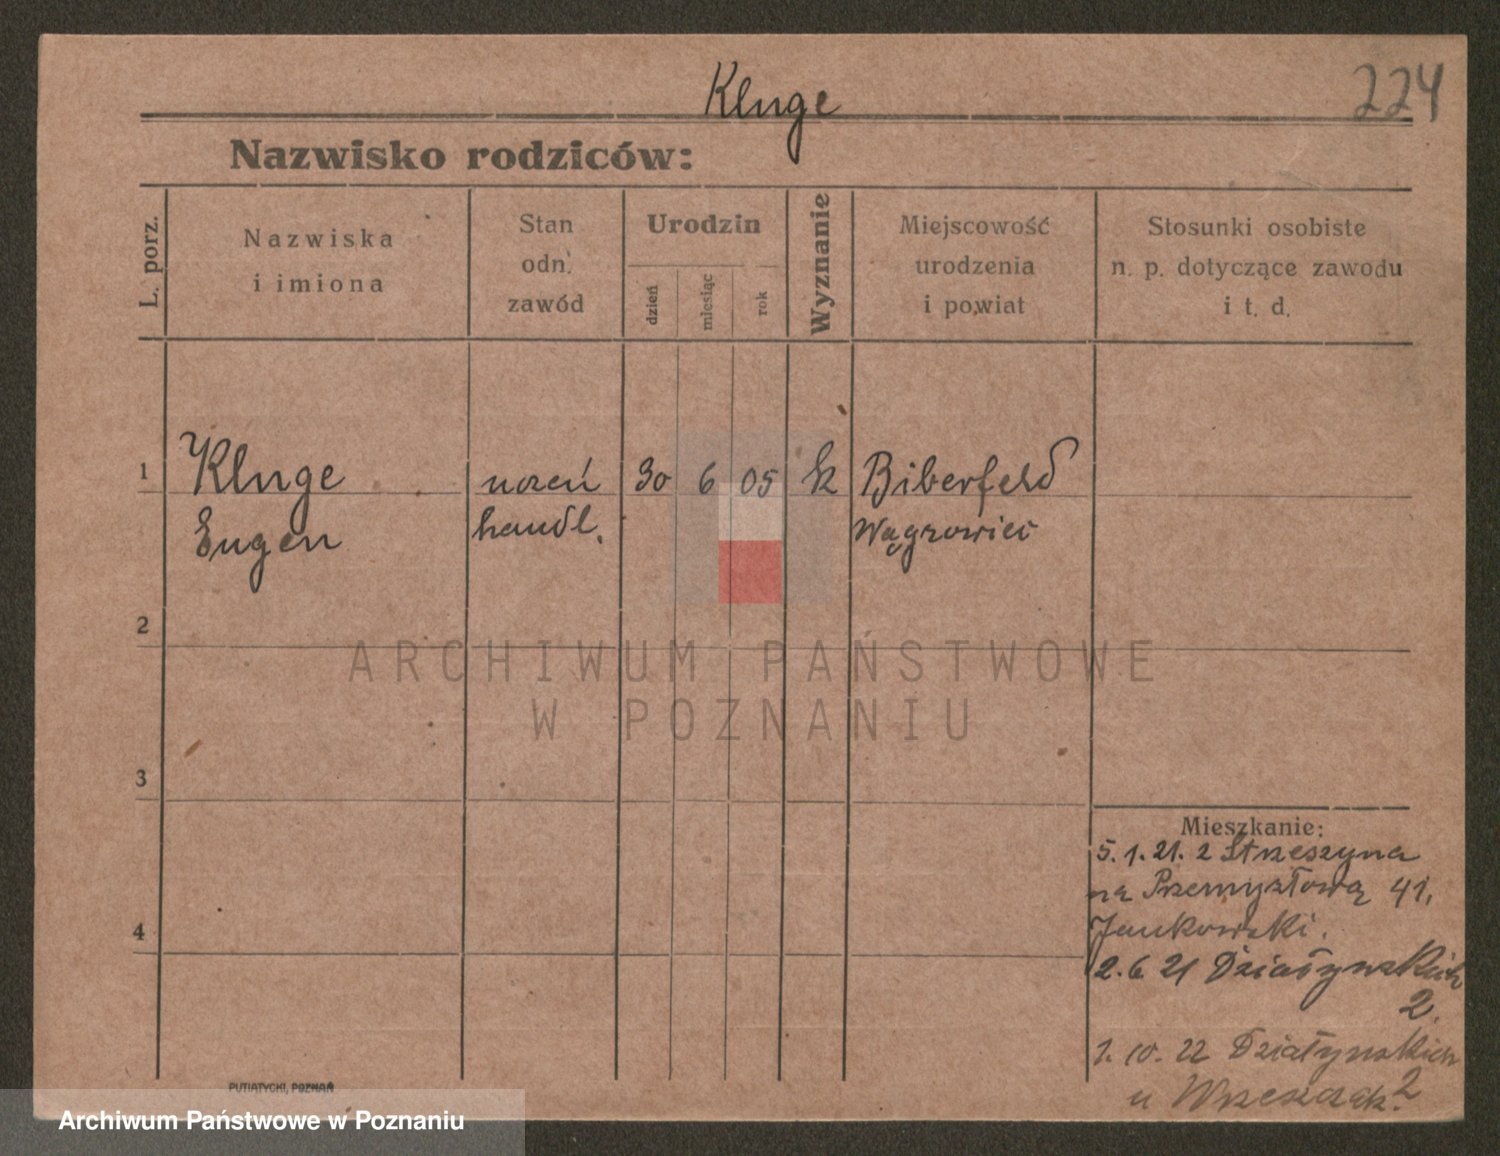 Kluge
224
Nazwisko rodziców:
L. porz.
Nazwiska
i imiona
Stan
odn.
zawód
Urodzin
dzień
miesiąc
rok
Wyznanie
Miejscowość
urodzenia
i powiat
Stosunki osobiste
n. p. dotyczące zawodu
i t. d.
1
Kluge
Eugen
uczeń
handl.
30
6
05
k
Biberfeld
Wągrowiec
2
ARCHIWUM PAŃSTWOWE
W POZNANIU
3
Mieszkanie:
5.1.21. z Strzeszyna
na Przemysłową 41.
Jankowski.
4
2.6 21 Działyńskich
2.
1.10.22 Działyńskich
2
u
PUTIATYCKI, POZNAŃ
Archiwum Państwowe w Poznaniu